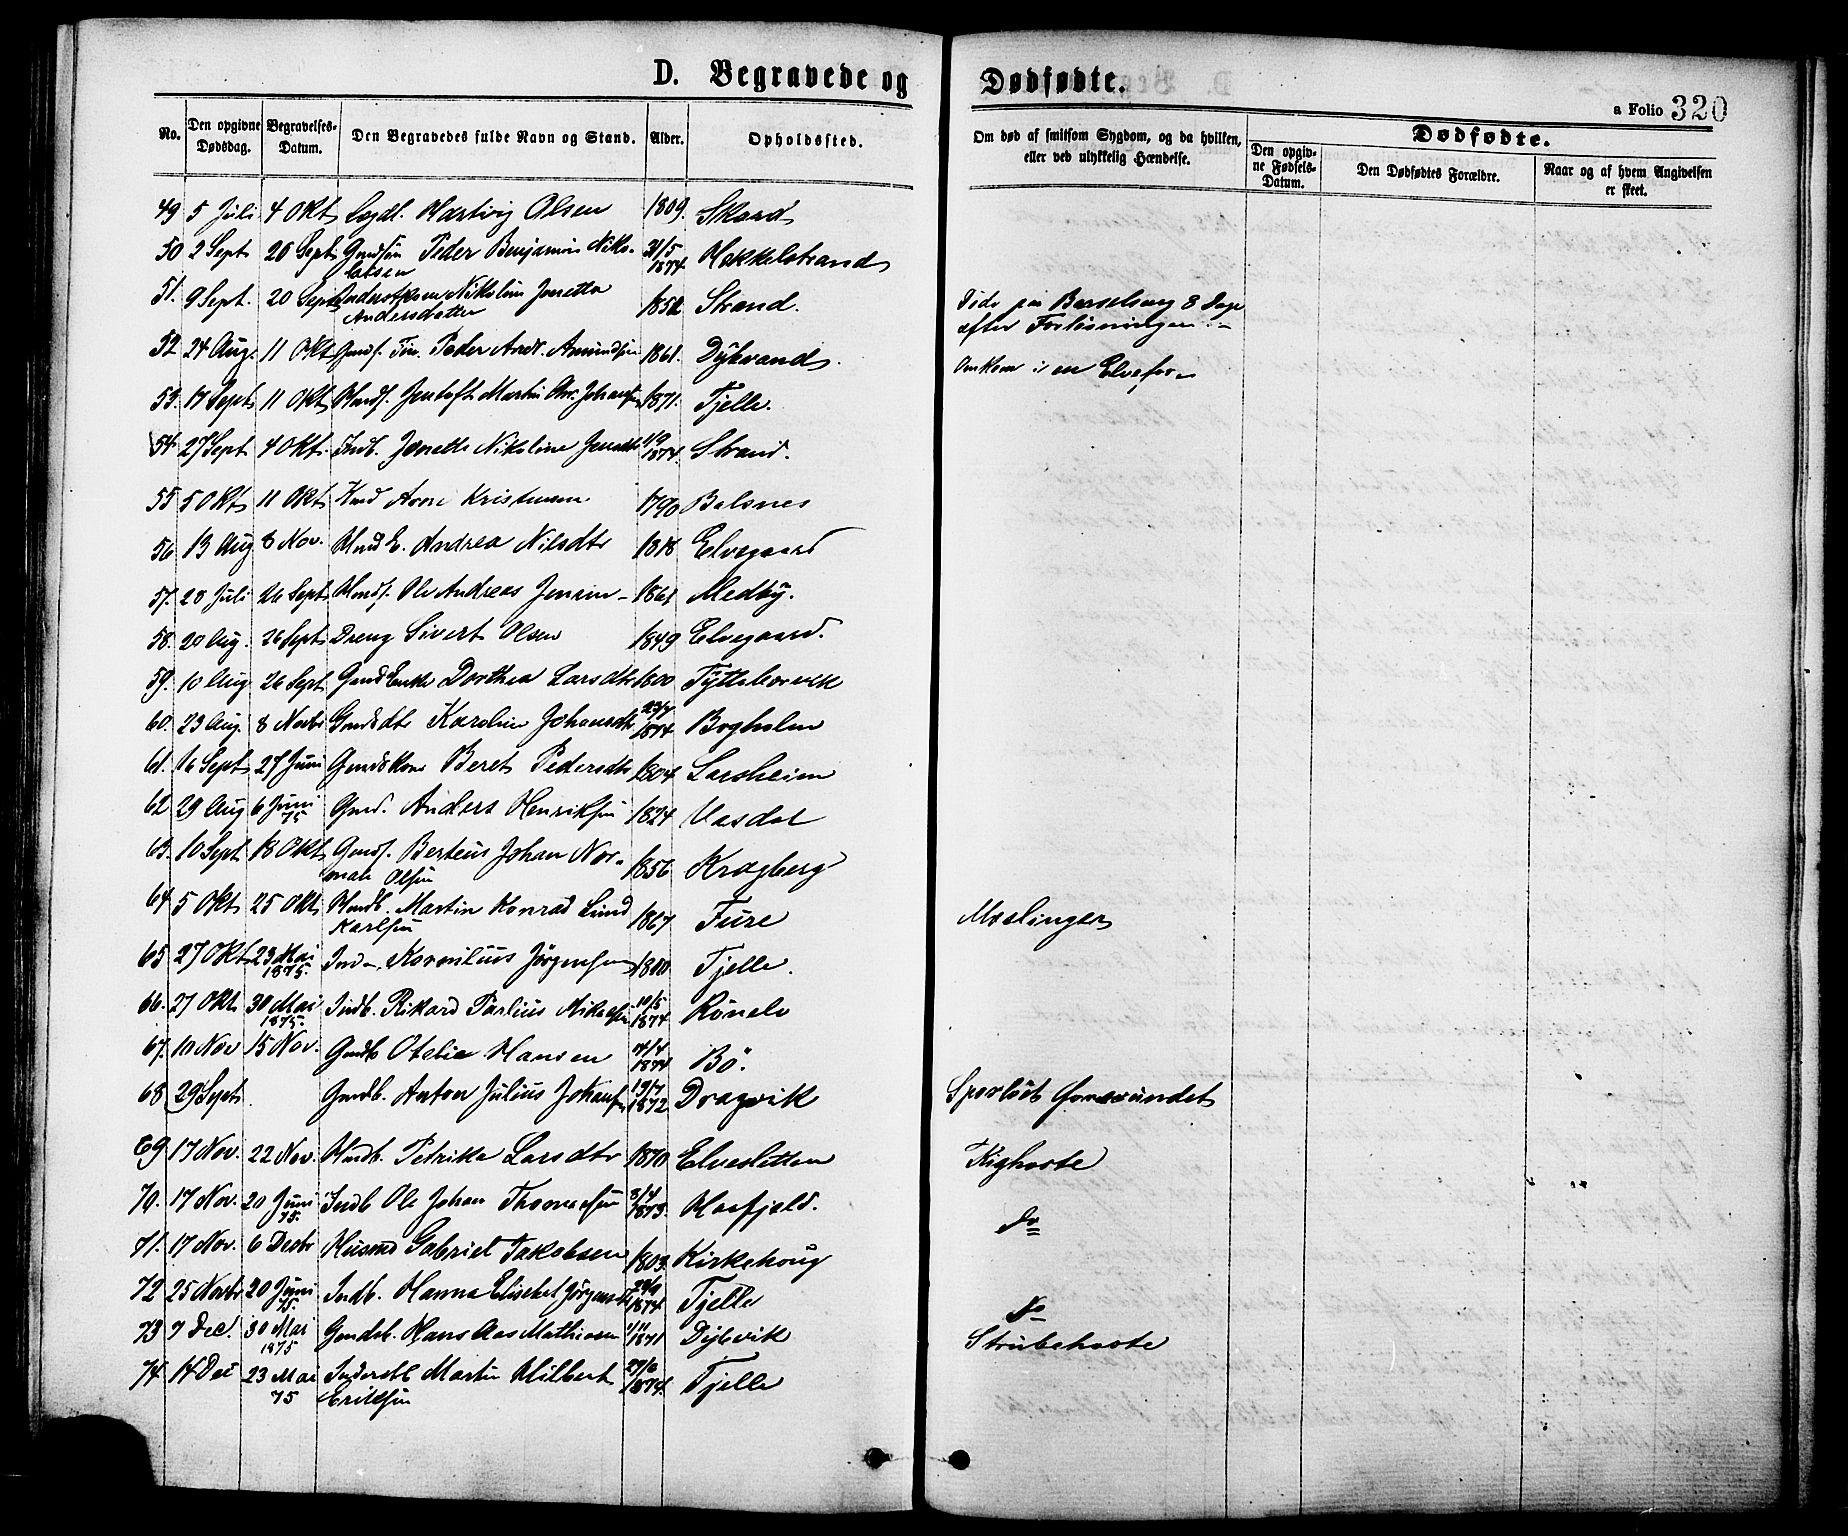 D. Begravede og Dødfødte.
a Folio 320
No.
Den opgivne Dødsdag.
Begravelses-Datum.
Den Begravedes fulde Navn og Stand.
Alder.
Opholdssted.
Om død af smitsom Sygdom, og da hvilken, eller ved ulykkelig Hændelse.
Dødfødte.
Den opgivne Fødsels-Datum.
Den Dødfødtes Forældre.
Naar og af hvem Angivelsen er skeet.
49 5 Juli 4 Okt Hartvig Olsen 1809. Skard
50 2 Sept 20 Sept Peder Benjamin 31/5 1874 Hokkelstrand
51. 9 Sept. 20 Sept Nikoline Jonetta Andersdatter Strand. Døde paa Barselseng 8 Dage
efter Forløsningen
52 24 Aug. 11 Okt Peder Andr. Amundsen 1861. Dybvand. Omkom i en Elvefos
53. 17 Sept 11 Okt Jentoft Martin Johansen 1871. Tjelle.
54. 27 Sept 4 Okt. Indb. Jonetta Nikoline 1/9 1874. Strand.
55 5 Okt 11 Okt Arne Kristensen 1790 Balsnes
56. 13 Aug 8 Nov. Andrea Nilsdtr 1818 Elvegaard
57. 28 Juli 26 Sept Ole Andreas Jensen 1861 Medby.
58. 20 Aug. 26 Sept Dreng Sivert Olsen 1849 Elvegaard.
59. 10 Aug 26 Sept Dorthea Larsdtr 1800 Tyttebærvik
60. 23 Aug. 8 Novbr Karoline Johansdtr 23/7 1874 Bogholm
61. 16 Sept 27 Juni Beret Pedersdtr 1804 Larsheim
62 29 Aug 6 Juni 75 Gmd. Anders Henriksen 1824 Vasdal
63. 10 Sept 18 Okt Berteus Johan Normak Olsen 1856 Kragberg
64 5 Okt 25 Okt Martin Konrad Lund
Karlsen 1867 Fure Mæslinger
65 27 Okt 23 Mai 1875. Kornilius Jørgensen 1800 Tjelle.
66. 27 Okt 30 Mai 1875. Indb. Rikard Parlius 10/5 1874
67. 10 Nov 15 Nov. Gmdb Otelie Hansen 14/4 1874 Bö.
68 29 Sept Gmdb. Anton Julius Johansen 19/7 1872 Dragvik Sporløst forsvundet
69 17 Nov. 22 Nov. Husdb. Petrika Larsdtr 1870 Elvesletten Kighoste
70. 17 Nov. 20 Juni 75. Indb Ole Johan Thomassen 3/4 1873. Haafjeld. Do
71. 17 Nov. 6 Decbr Husmd Gabriel Jakobsen 1803. Kirkehoug
72 25 Novbr 20 Juni 75. Indb. Hanna Elisebet Jørgensdtr 1874 Tjelle Do
73 7 Dec. 30 Mai 1875 Gmdsb. Hans Aas Mathisen 1/11 1871 Dybvik Strubehoste
74 14 Dec 23 Mai 75 Martin Hilbert
Eriksen 27/6 1874. Tjelle